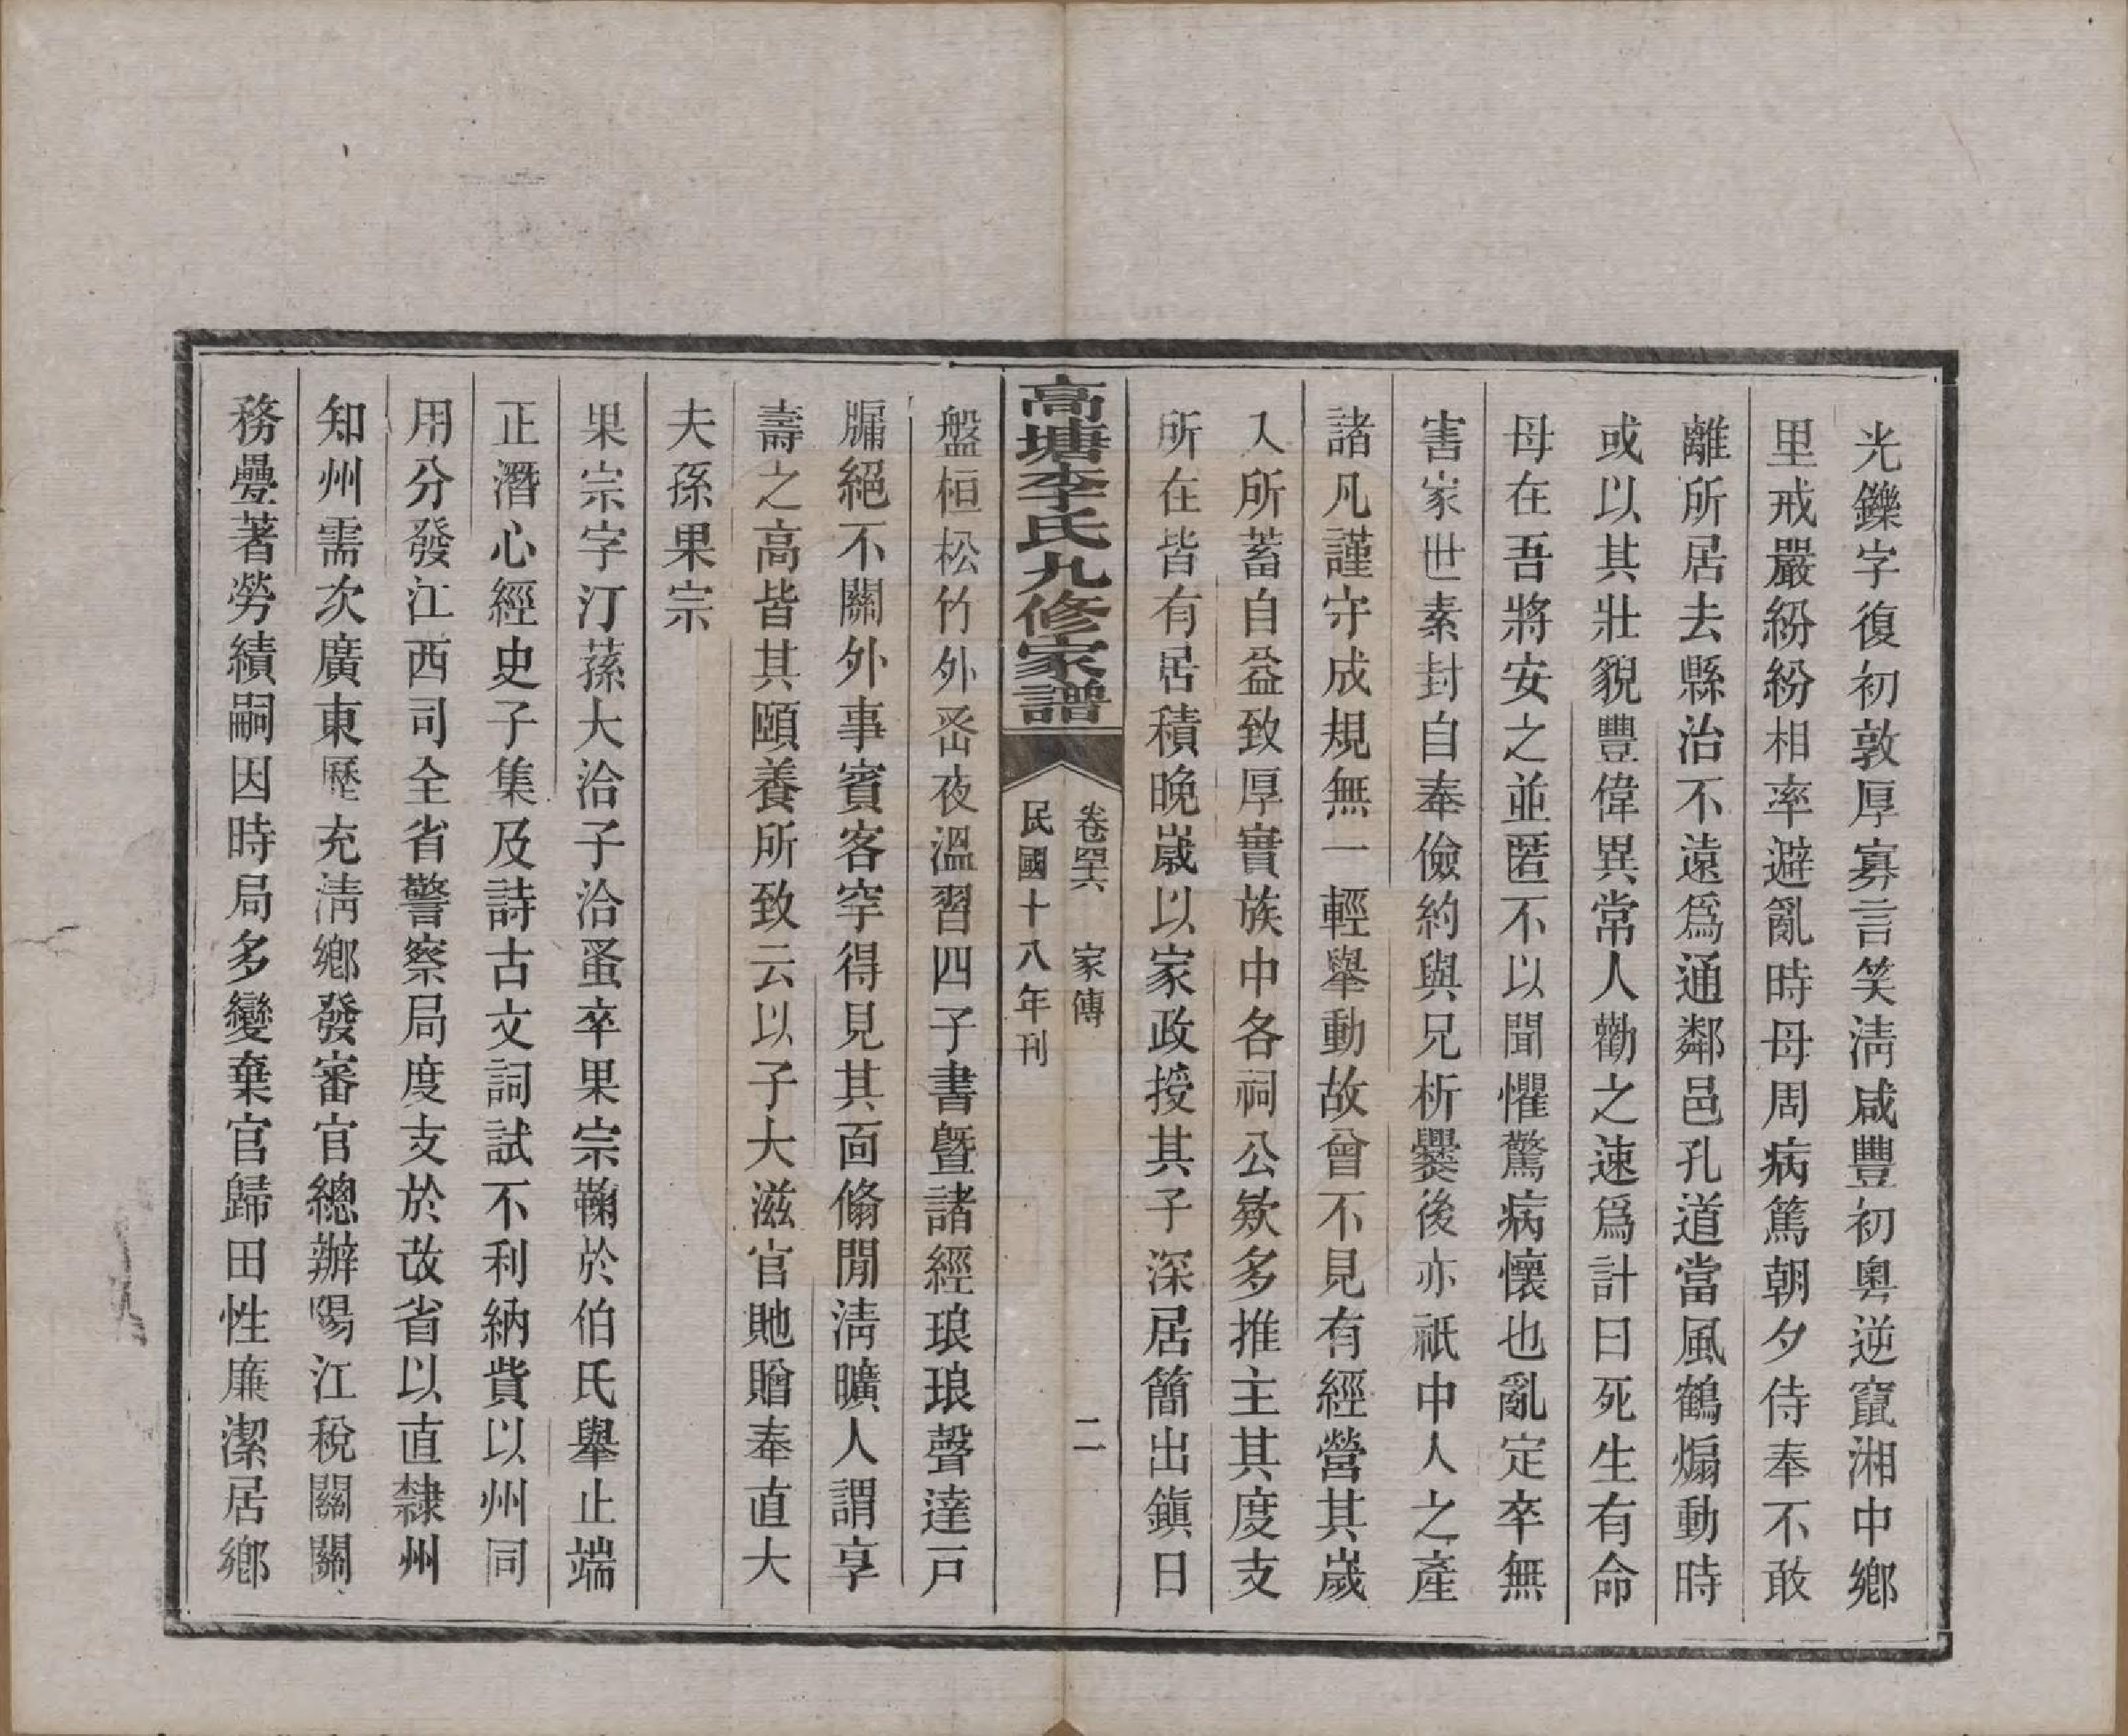 光鑠字復初敦厚寡言笑清咸豐初粵逆竄湘中鄉
里戒嚴紛紛相率避亂時母周病篤朝夕侍奉不敢
離所居去縣治不遠爲通鄰邑孔道當風鶴煽動時
或以其壯貌豐偉異常人勸之速爲計曰死生有命
母在吾將安之並匿不以聞懼驚病懷也亂定卒無
害家世素封自奉儉約與兄析爨後亦祇中人之產
諸凡謹守成規無一輕舉動故曾不見有經營其歲
入所蓄自益致厚實族中各祠公欵多推主其度支
所在皆有居積晚歲以家政授其子深居簡出鎭日
高塘李氏九修家譜
卷四十六 家傳 二
民國十八年刊
盤桓松竹外每夜溫習四子書曁諸經琅琅聲達戸
牖絕不關外事賓客罕得見其面翛閒淸曠人謂享
壽之高皆其頤養所致云以子大滋官貤贈奉直大
夫孫果宗
果宗字汀蓀大洽子洽蚤卒果宗鞠於伯氏舉止端
正潛心經史子集及詩古文詞試不利納貲以州同
用分發江西司全省警察局度支於改省以直隸州
知州需次廣東歷充淸鄉發審官總辦陽江稅關關
務疊著勞績嗣因時局多變棄官歸田性廉潔居鄉